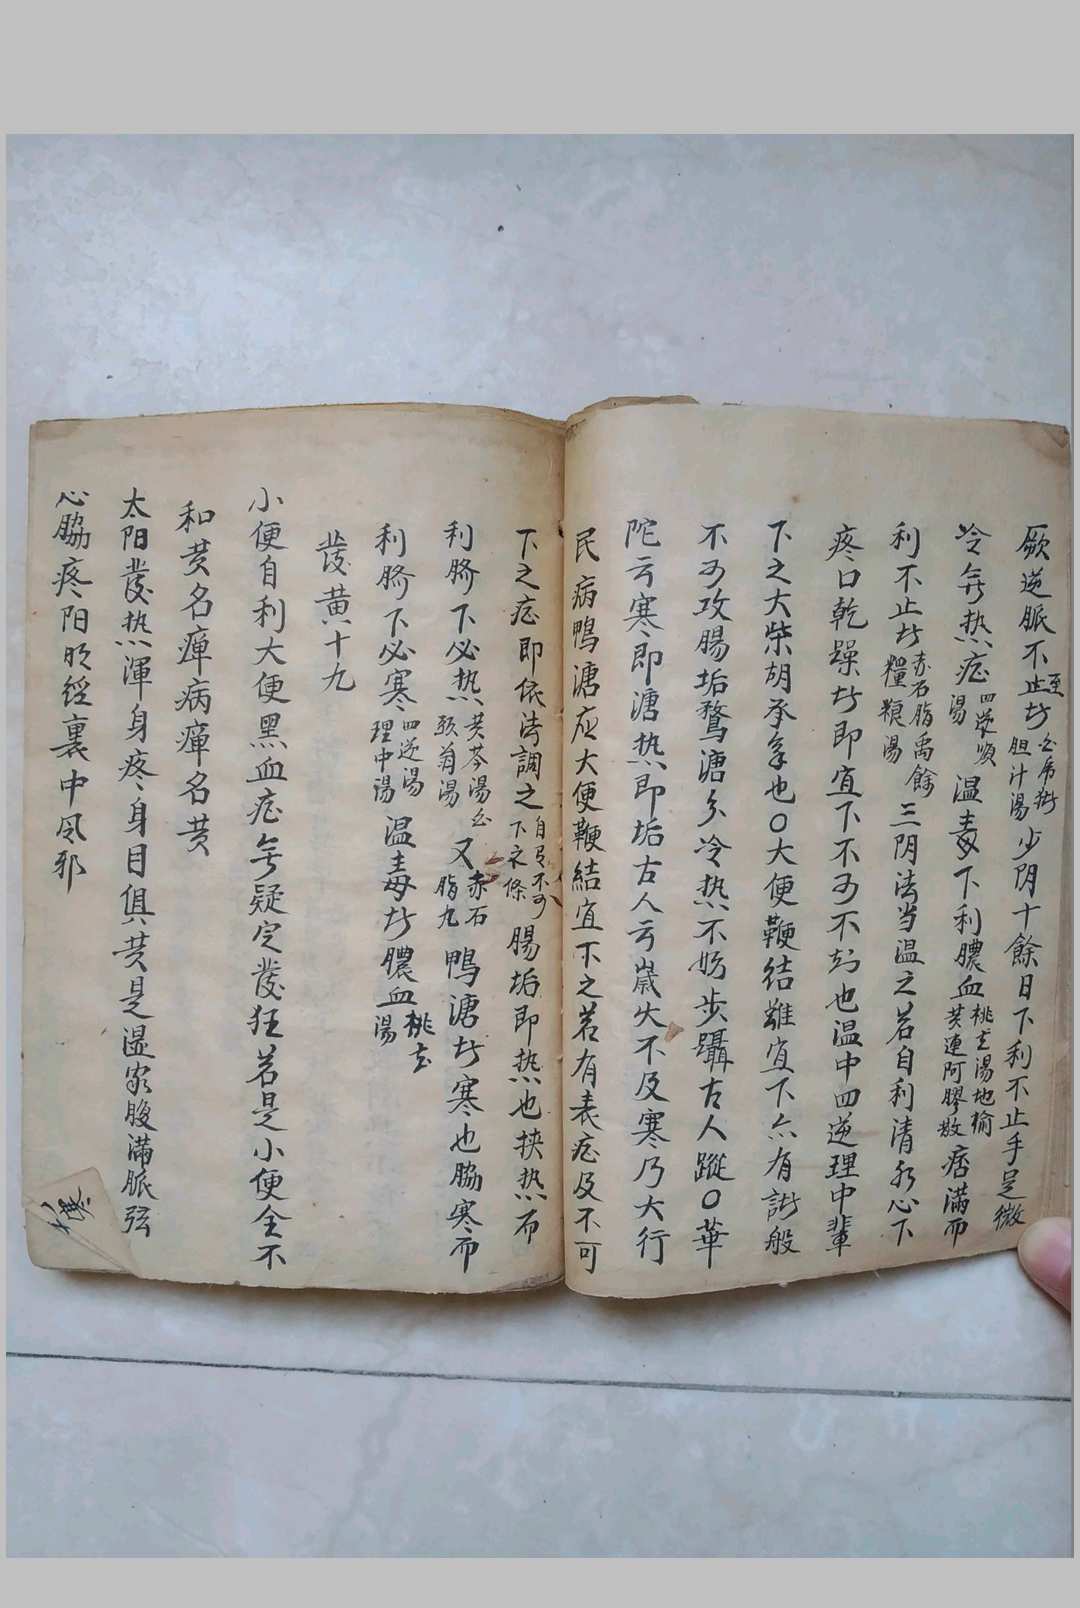 厥逆脈不止至者 白虎湯 胆汁湯 少阴十餘日下利不止手足微
冷無热症 四逆順湯 温毒下利膿血 桃花湯地榆 黄連阿膠散 痞滿而
利不止者 赤石脂禹餘糧粮湯 三阴法当温之若自利清水心下
疼口乾躁者即宜下不可不知也温中四逆理中輩
下之大柴胡承氣也〇大便鞕結雖宜下亦有諸般
不可攻腸垢鶩溏分冷热不妨步躡古人蹤〇華
陀云寒即溏热即垢古人云歲火不及寒乃大行
民病鴨溏应大便鞕結宜下之若有表症及不可
下之症即依法調之 自有不可下之條 腸垢即热也挾热而
利臍下必热 黄芩湯白頭翁湯 又 赤石脂丸 鴨溏者寒也脇寒而
利臍下必寒 四逆湯理中湯 温毒者膿血 桃花湯
發黄十九
小便自利大便黑血症無疑定發狂若是小便全不
和黄名癉病癉名黄
太阳發热渾身疼身目俱黄是濕家腹滿脈弦
心脇疼阳明經裏中风邪